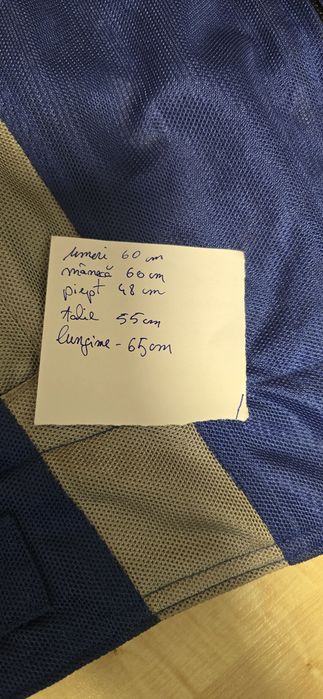 umeri 60 cm
mânecă 60 cm
piept 48 cm
talie 55 cm
lungime - 65 cm